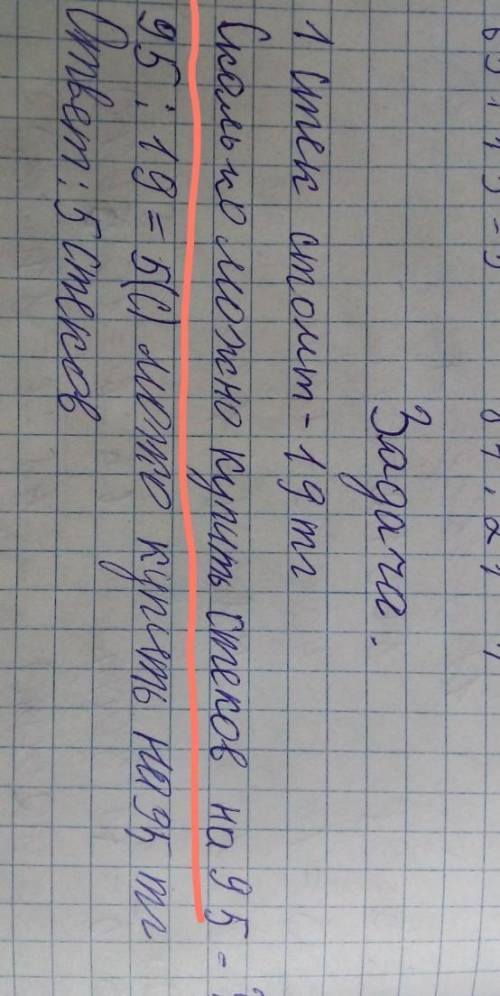 Задача.
1 стек стоит - 19 тг
Сколько можно купить стеков на 95 - ?
95 : 19 = 5(с) можно купить на 95 тг
Ответ: 5 стеков